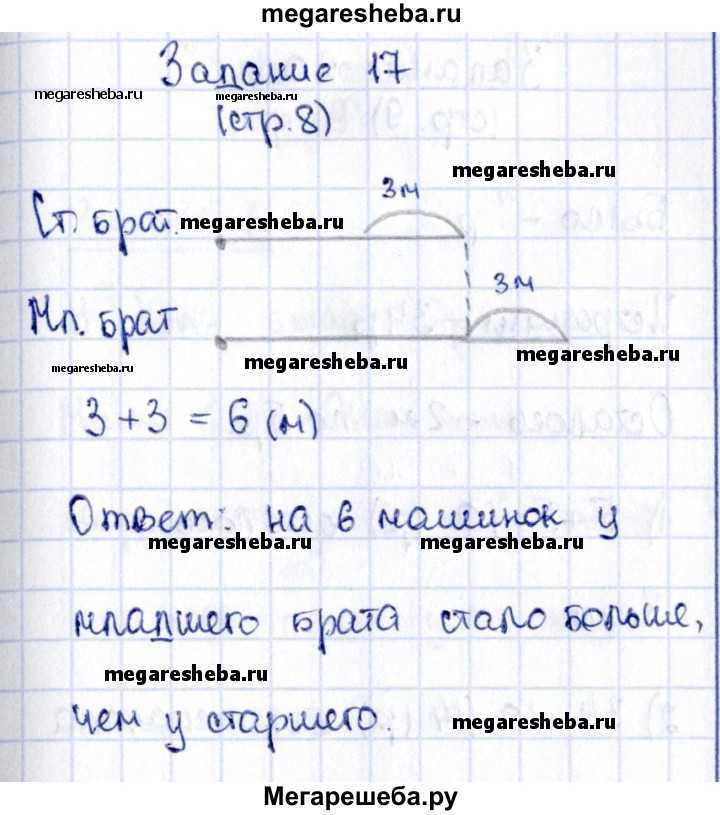 megaresheba.ru
Задание 17
megaresheba.ru
megaresheba.ru
(стр.8)
megaresheba.ru
3м
Ст. брат.
megaresheba.ru
3м
Мл. брат
megaresheba.ru
megaresheba.ru
megaresheba.ru
3 + 3 = 6 (м)
Ответ: на 6 машинок у
megaresheba.ru
megaresheba.ru
младшего брата стало больше,
megaresheba.ru
чем у старшего.
megaresheba.ru
Мегарешеба.ру